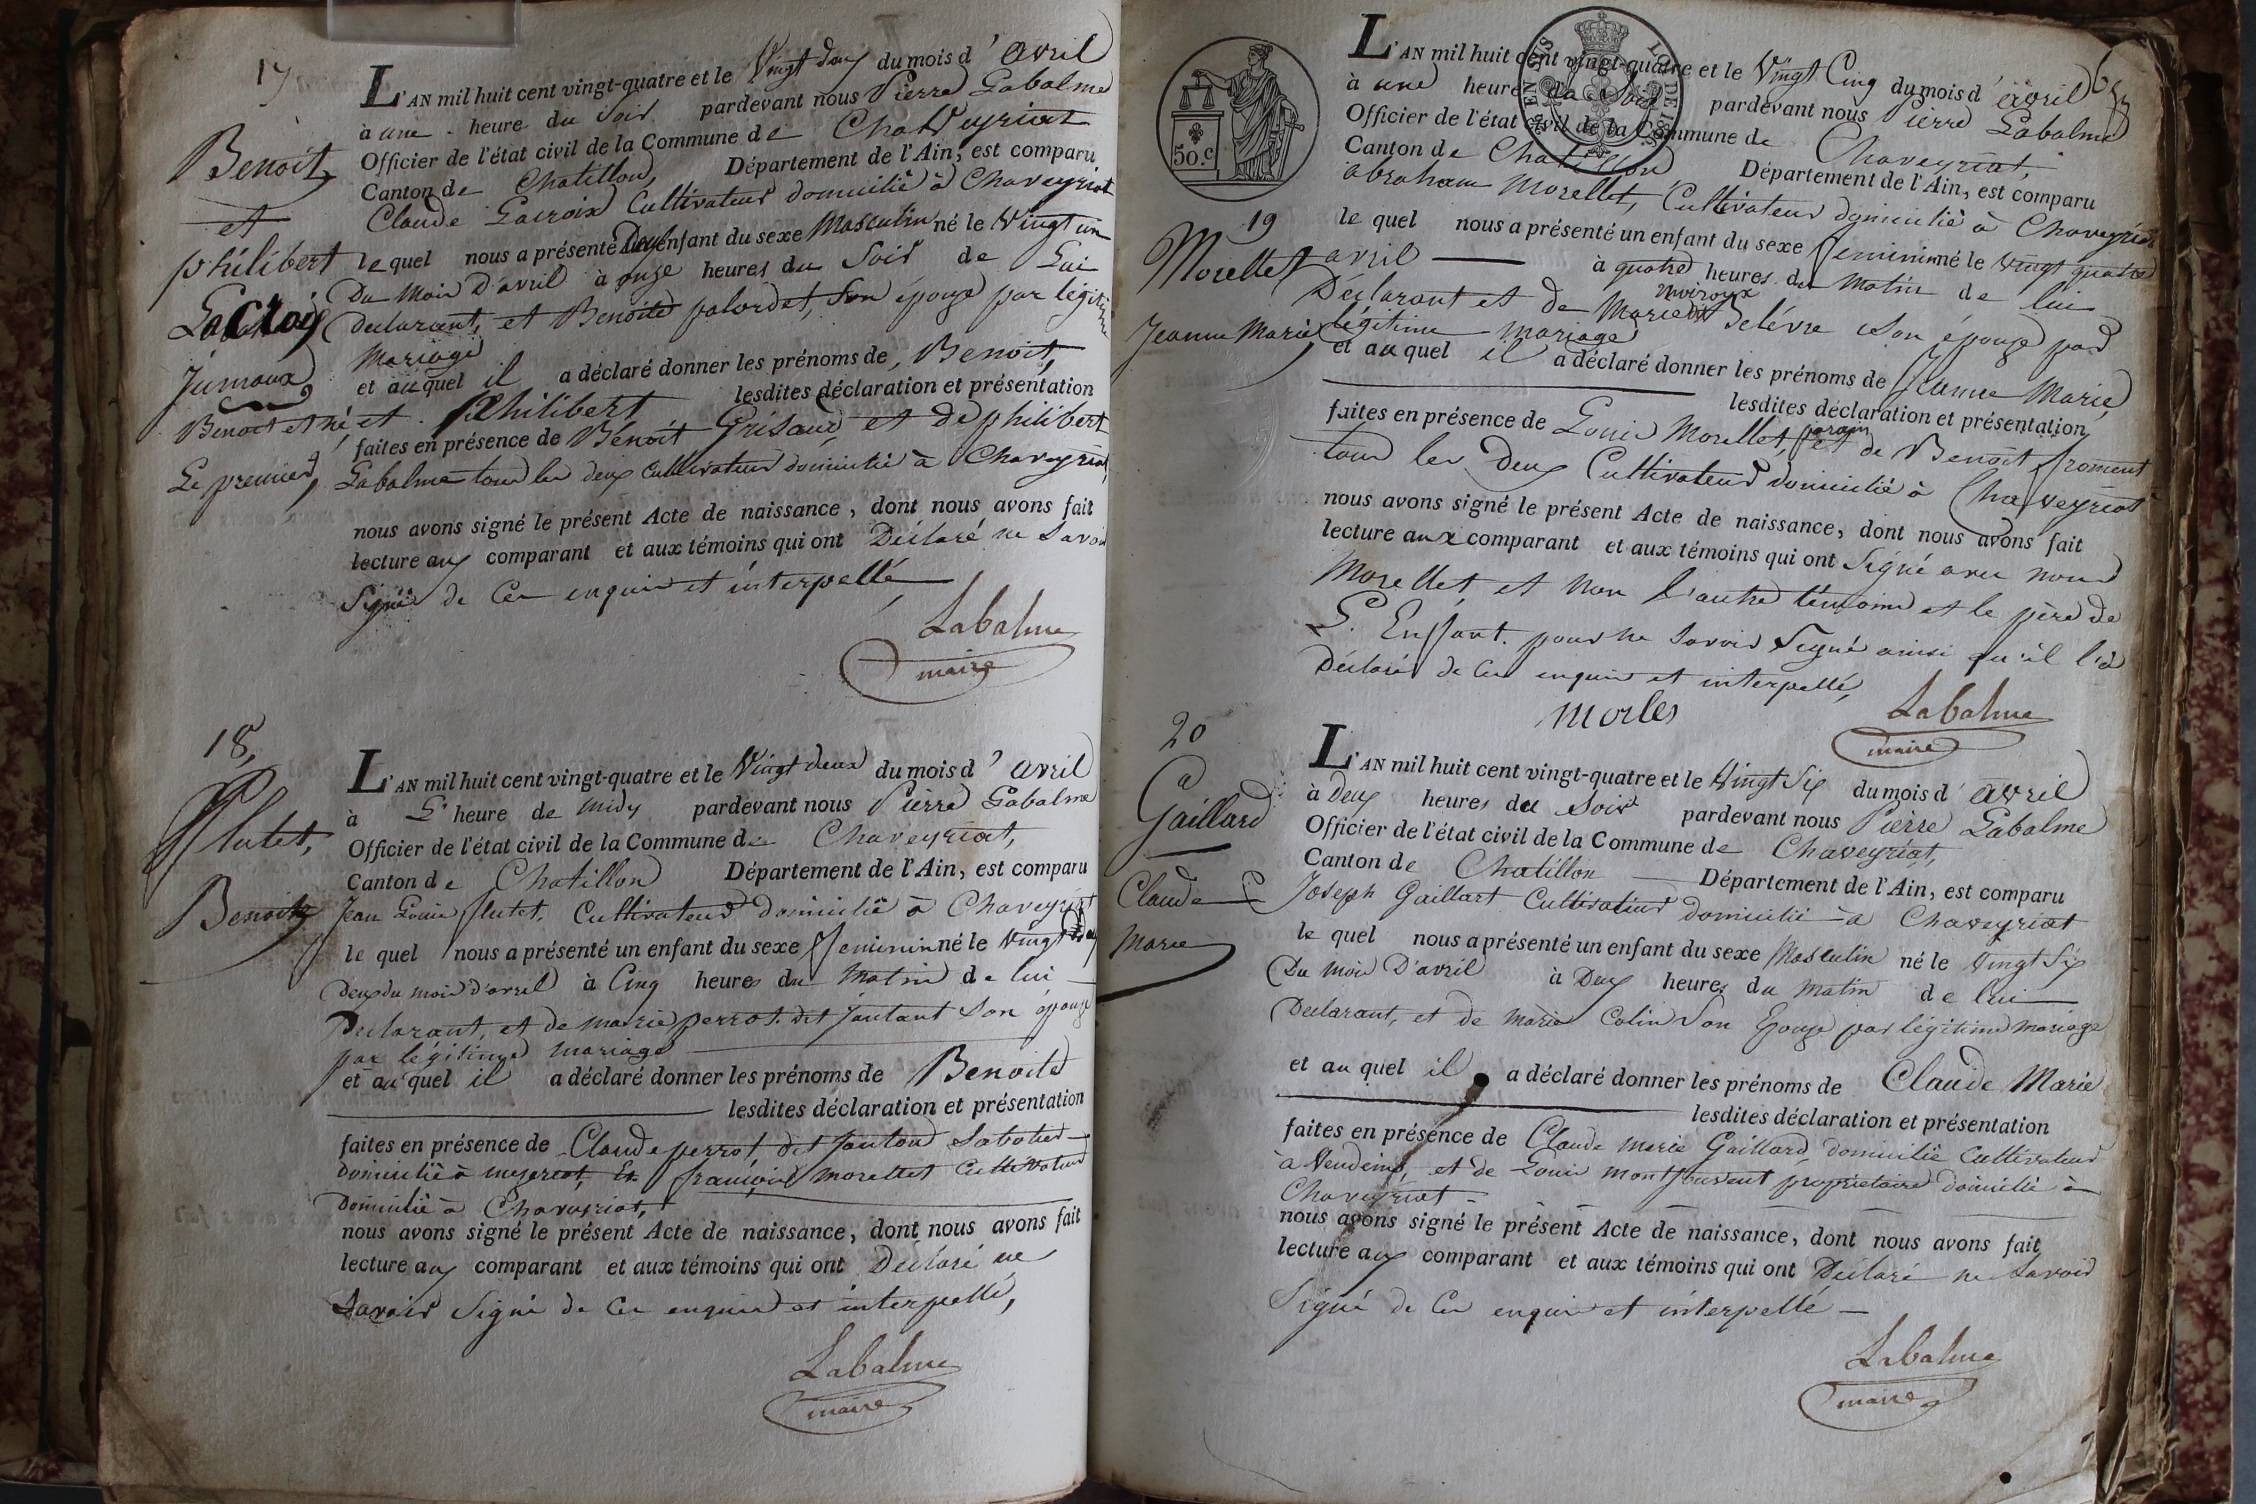 17
Benoit,
et
philibert
Lacroix
Jumaux,
Benoit et né
Le premier,
L'AN mil huit cent vingt-quatre et le Vingt deux du mois d'avril
à une heure du Soir pardevant nous Pierre Labalme
Officier de l'état civil de la Commune de Chaveyriat
Canton de Chatillon, Département de l'Ain, est comparu
Claude Lacroix Cultivateur domicilié à Chaveyriat
le quel nous a présenté Deux enfant du sexe Masculin né le Vingt un
Du Mois D'avril à onze heures du Soir de Lui
declarant, et Benoite palordet, Son épouze par légitime
Mariage
et au quel il a déclaré donner les prénoms de, Benoit,
et philibert lesdites déclaration et présentation
faites en présence de Bénoit Grisaud et de philibert
Labalme tous les deux cultivateur domicilié à Chaveyriat,
nous avons signé le présent Acte de naissance, dont nous avons fait
lecture aux comparant et aux témoins qui ont Déclaré ne Savoir
Signé de Ce enquis et interpellé,
Labalme
maire
18,
flutet,
Benoite
L'AN mil huit cent vingt-quatre et le Vingt deux du mois d'avril
à L'heure de midy pardevant nous Pierre Labalme
Officier de l'état civil de la Commune de Chaveyriat,
Canton de Chatillon Département de l'Ain, est comparu
Jean Louis flutet, Cultivateur domicilié à Chaveyriat
le quel nous a présenté un enfant du sexe feminin né le Vingt
Deux du mois d'avril à Cinq heures du Matin de lui
Declarant, et de marie perrot dit Jantant Son épouze
par légitime mariage
et au quel il a déclaré donner les prénoms de Benoite
lesdites déclaration et présentation
faites en présence de Claude perrot dit Sabotier
domicilié à mezeriat, Et françois Morellet Cultivateur
Domicilié à Chaveyriat,
nous avons signé le présent Acte de naissance, dont nous avons fait
lecture aux comparant et aux témoins qui ont Déclaré ne
Savoir Signé de Ce enquis et interpellé,
Labalme
maire
50.c
EN SUS
19
Morellet
Jeanne Marie
L'AN mil huit cent vingt-quatre et le Vingt Cinq du mois d'avril
à une heure du Soir pardevant nous Pierre Labalme
Officier de l'état civil de la Commune de Chaveyriat,
Canton de Chatillon Département de l'Ain, est comparu
abraham Morellet, Cultivateur domicilié à Chaveyriat
le quel nous a présenté un enfant du sexe feminin né le Vingt quatre
avril à quatre heures du Matin de lui
Déclarant et de Marie Delévre Son épouze par
légitime mariage
et au quel il a déclaré donner les prénoms de Jeanne Marie,
lesdites déclaration et présentation
faites en présence de Louis Morellet, parain et de Benoit froment
tous les Deux Cultivateur domicilié à Chaveyriat
nous avons signé le présent Acte de naissance, dont nous avons fait
lecture aux comparant et aux témoins qui ont Signé avec nous
Morellet et Non l'autre témoins et le père de
L'Enfant pour ne Savoir Signé ainsi qu'il l'a
Déclaré de Ce enquis et interpellé,
morles
Labalme
maire
20
Gaillard
Claude
Marie
L'AN mil huit cent vingt-quatre et le Vingt Six du mois d'avril
à Deux heures du Soir pardevant nous Pierre Labalme
Officier de l'état civil de la Commune de Chaveyriat,
Canton de Chatillon Département de l'Ain, est comparu
Joseph Gaillart Cultivateur domicilié à Chaveyriat
le quel nous a présenté un enfant du sexe Masculin né le Vingt Six
Du Mois D'avril à Deux heures du Matin de lui
Declarant, et de Marie Colin Son Epouze par légitime mariage
et au quel il a déclaré donner les prénoms de Claude Marie
lesdites déclaration et présentation
faites en présence de Claude Marie Gaillard, domicilié Cultivateur
à Vendeins, et de Louis propriétaire domicilié à
Chaveyriat
nous avons signé le présent Acte de naissance, dont nous avons fait
lecture aux comparant et aux témoins qui ont Déclaré ne Savoir
Signé de Ce enquis et interpellé
Labalme
maire